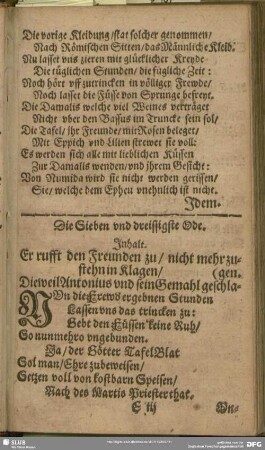 Die vorige Kleidung/stat solcher genommen/
Nach Römischen Sitten/das Männliche Kleid.
Nu lasset vns zieren mit glücklicher Kreyde
Die täglichen Stunden/die fügliche Zeit:
Noch hört vff zutrincken in völliger Frewde/
Noch lasset die Füsse von Sprunge befreyt.
Die Damalis welche viel Weines verträget
Nicht vber den Bassus im Truncke sein sol/
Die Tafel/ihr Freunde/mit Rosen beleget/
Mit Eppich vnd Lilien strewet sie voll:
Es werden sich alle mit lieblichen Küssen
Zur Damalis wenden/vnd ihrem Gesicht:
Von Numida wird sie nicht werden gerissen/
Sie/welche dem Epheu vnehnlich ist nicht.
Idem.
Die Sieben vnd dreissigste Ode.
Inhalt.
Er rufft den Freunden zu/nicht mehr zu-
stehn in Klagen/
(gen.
Dieweil Antonius vnd sein Gemahl geschla-
VOn die Erews ergebnen Stunden
Lassen vns das trincken zu:
Gebt den Füssen keine Ruh/
So nunmehro vngebunden.
Ja/der Götter Tafel Blat
Sol man/Ehre zubeweisen/
Setzen voll von kostbarn Speisen/
Nach des Martis Priester that.
E iij
Vn-
SLUB